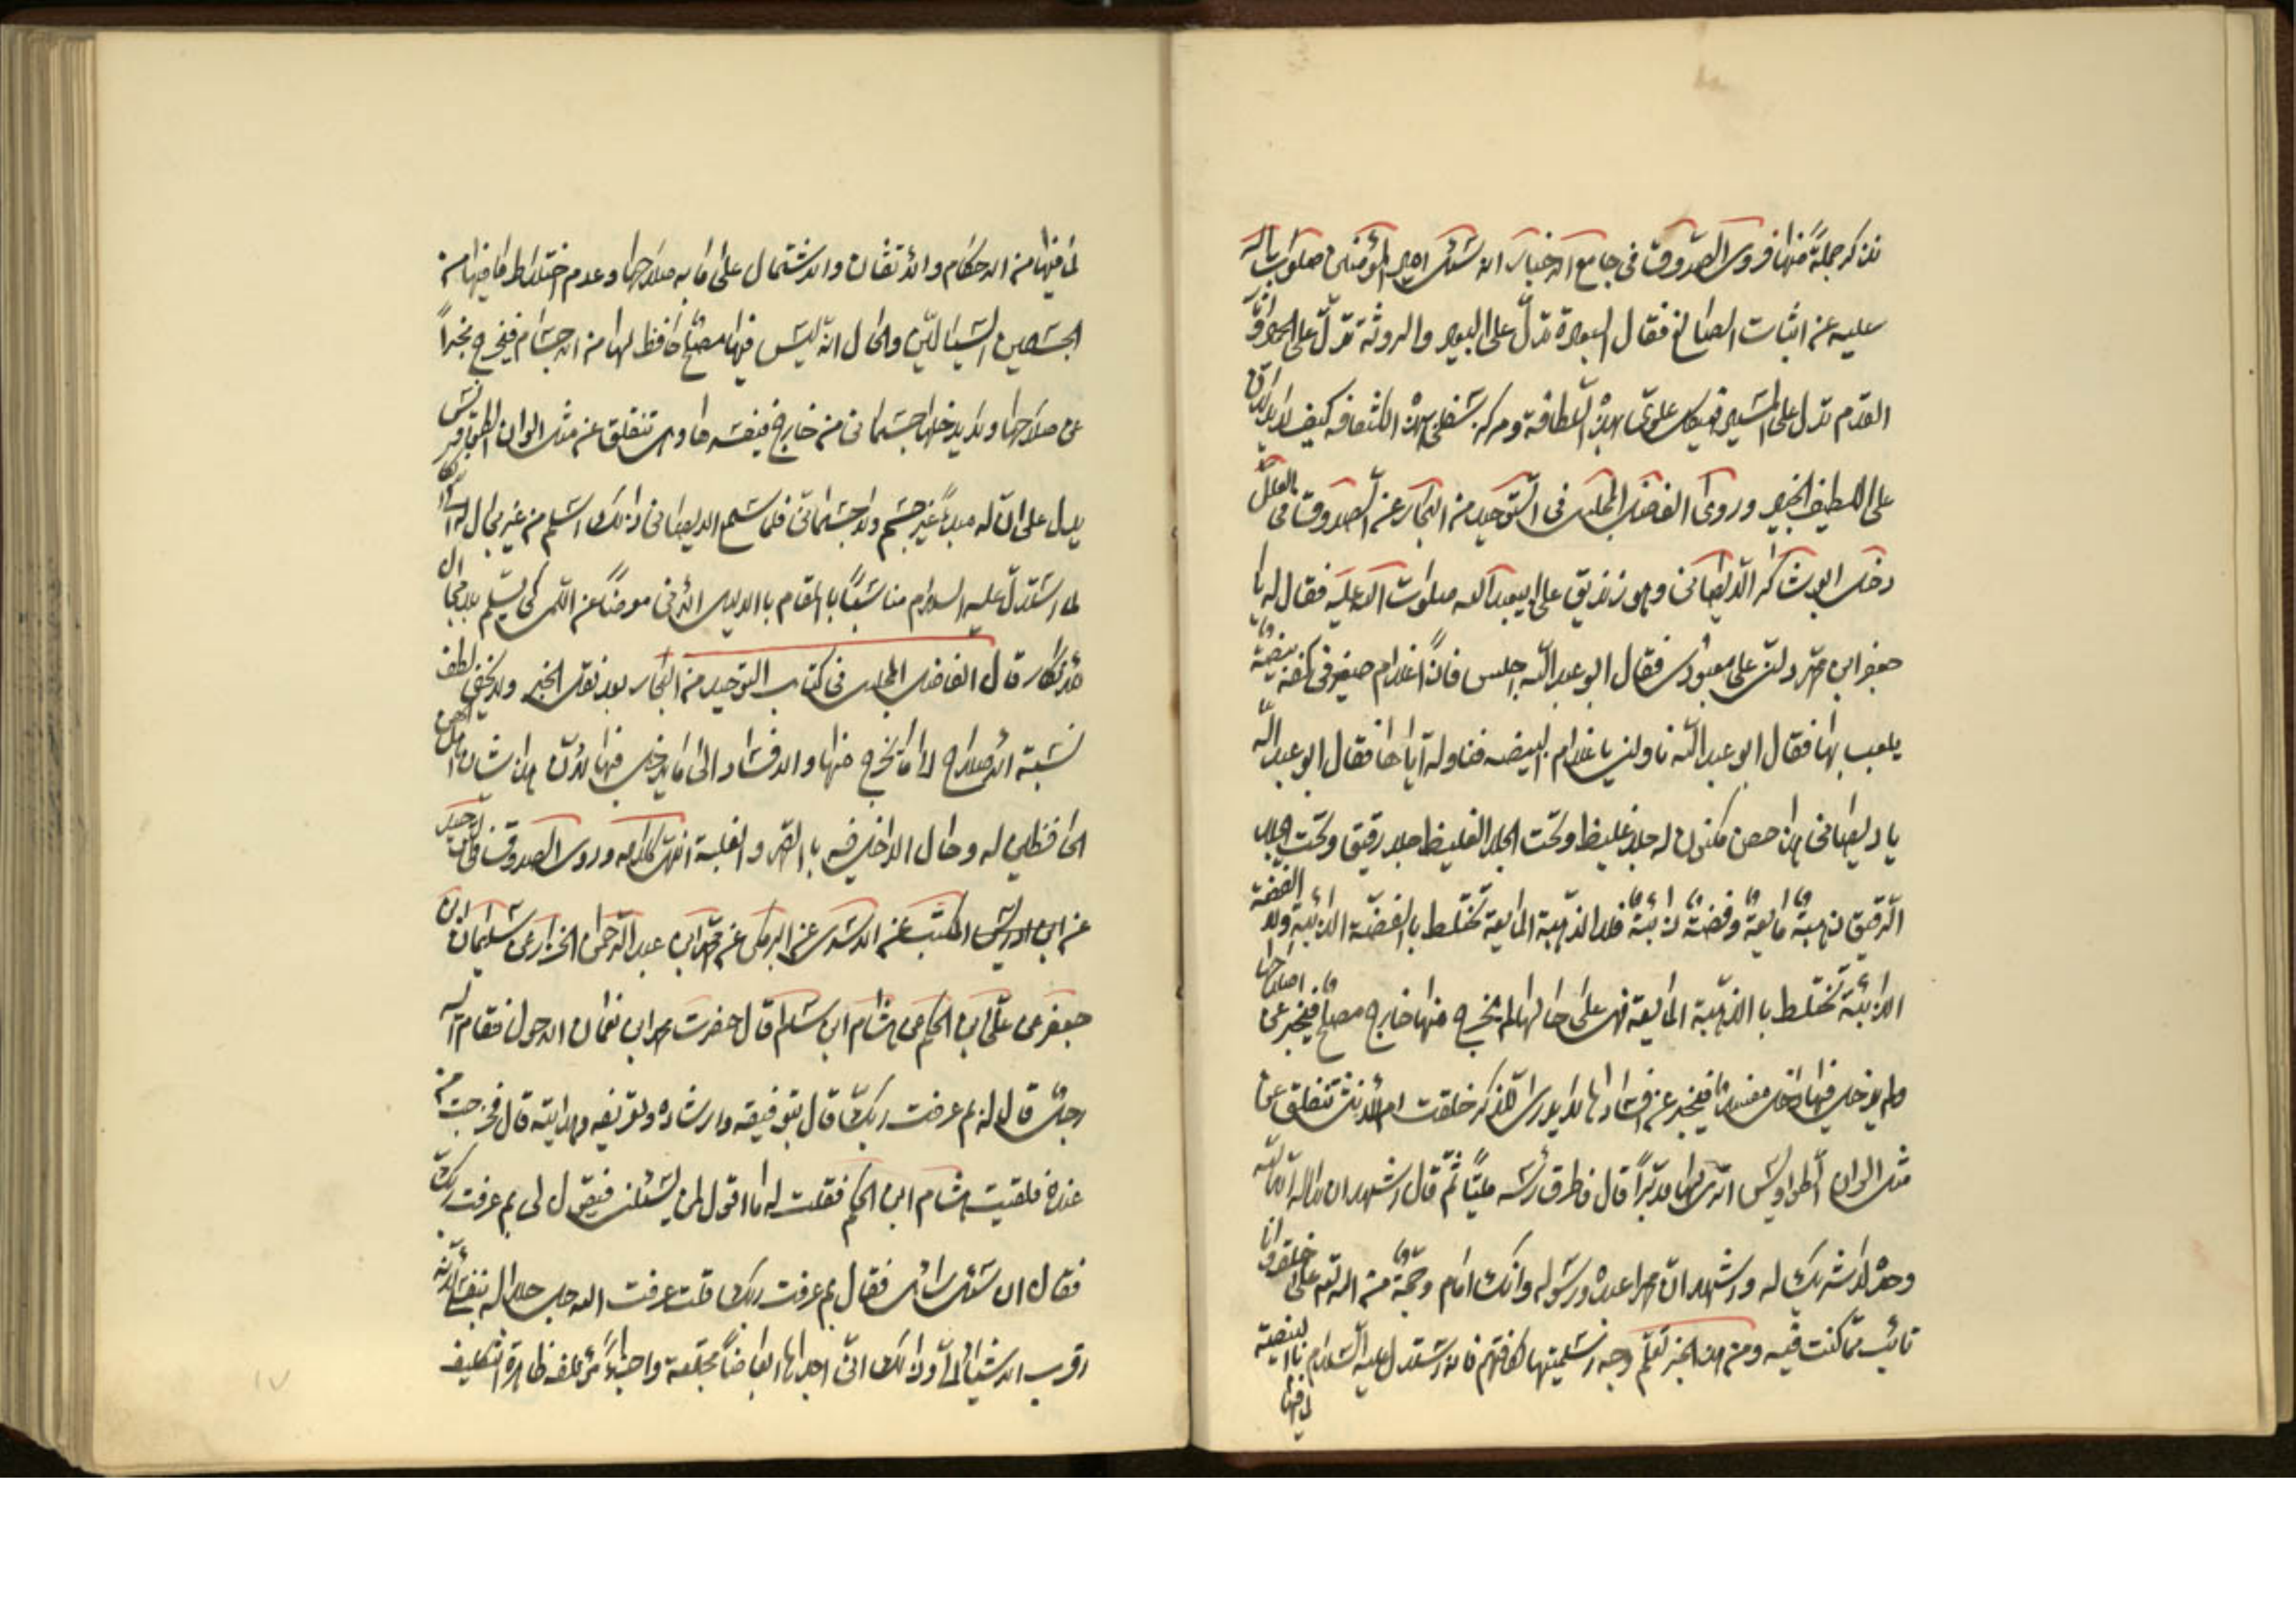 نذكر جملة منها فروى الصدوق في جامع الاخبار انه سئل امير المؤمنين صلوات الله
عليه عن اثبات الصانع فقال البعرة تدل على البعير والروثة تدل على الحمير واثار
القدم تدل على المسير فهيكل علوي بهذه اللطافة ومركز سفلي بهذه الكثافة كيف لا يدلان
على اللطيف الخبير وروى الفاضل المجلسي في التوحيد من البحار عن الصدوق في
دخل ابو شاكر الديصاني وهو زنديق على ابيعبد الله صلوات الله عليه فقال له يا
جعفر ابن محمد دلني على معبودي فقال ابو عبد الله اجلس فاذا غلام صغير في كفه بيضة
يلعب بها فقال ابو عبد الله ناولني يا غلام البيضه فناوله اياها فقال ابو عبد الله
يا ديصاني هذا حصن مكنون له جلد غليظ وتحت الجلد الغليظ جلد رقيق وتحت الجلد
الرقيق ذهبة مايعة وفضة ذائبة فلا الذهبة المايعة تختلط بالفضة الذائبة ولا الفضة
الذائبة تختلط با الذهبة المايعة فهى على حالها لم يخرج منها خارج مصلح فيخبر عن اصلاحها
ولم يدخل فيها داخل مفسد فيخبر عن افسادها لا يدرى للذكر خلقت ام للانثى تنفلق عن
مثل الوان الطواويس اترى لها مدبرا قال فاطرق راسه مليا ثم قال اشهد ان لا اله الا الله
وحده لا شريك له واشهد ان محمدا عبده ورسوله وانك امام وحجة من الله على خلقه وانا
تائب مما كنت فيه ومن هذا الخبر تعلم وجه فانه استدل عليه السلام با البيضة
لما فيها
لما فيها من الاحكام والاتقان والاشتمال على ما به صلاحها وعدم اختلاط ما فيها من
الجسمين السيالين والحال انه ليس فيها مصلح حافظ لها من الاجسام فيخرج مخبرا
عن صلاحها ولا يدخلها جسماني من خارج فيفسدها وهى تنفلق عن مثل الوان الطواويس
يدل على ان له مبدأ غير جسم ولا جسماني فلما سمع الديصاني ذلك اسلم من غير
لما استدل عليه السلام مناسبا بالمقام با الدليل
قال الفاضل المجلسي في كتاب التوحيد من البحار بعد نقل الخبر ولا يخفى لطف
نسبة الاصلاح الى ما يخرج منها والافساد الى ما يدخل فيها لان هذا شان اهل الحصن
الحافظين له وحال الداخل فيه با القهر والغلبة انتهى كلامه وروى الصدوق في التوحيد
عن ابن ادريس المكتب عن الاسدي عن البرمكي عن محمد ابن عبد الرحمن الخزاز عن سليمان ابن
جعفر عن علي ابن الحكم عن هشام ابن سالم قال حضرت محمد ابن نعمان الاحول فقام اليه
رجل قال له بم عرفت ربك قال بتوفيقه وارشاده وتعريفه وهدايته قال فخرجت من
عنده فلقيت هشام ابن الحكم فقلت له ما اقول لمن يسئلني فيقول لي بم عرفت ربك
فقال ان سئل سائل فقال بم عرفت ربك قلت عرفت الله جل جلاله بنفسي لانها
اقرب الاشياء الي وذلك اني اجدها ابعاضا مجتمعة واجزاء مؤتلفة ظاهرة التركيب